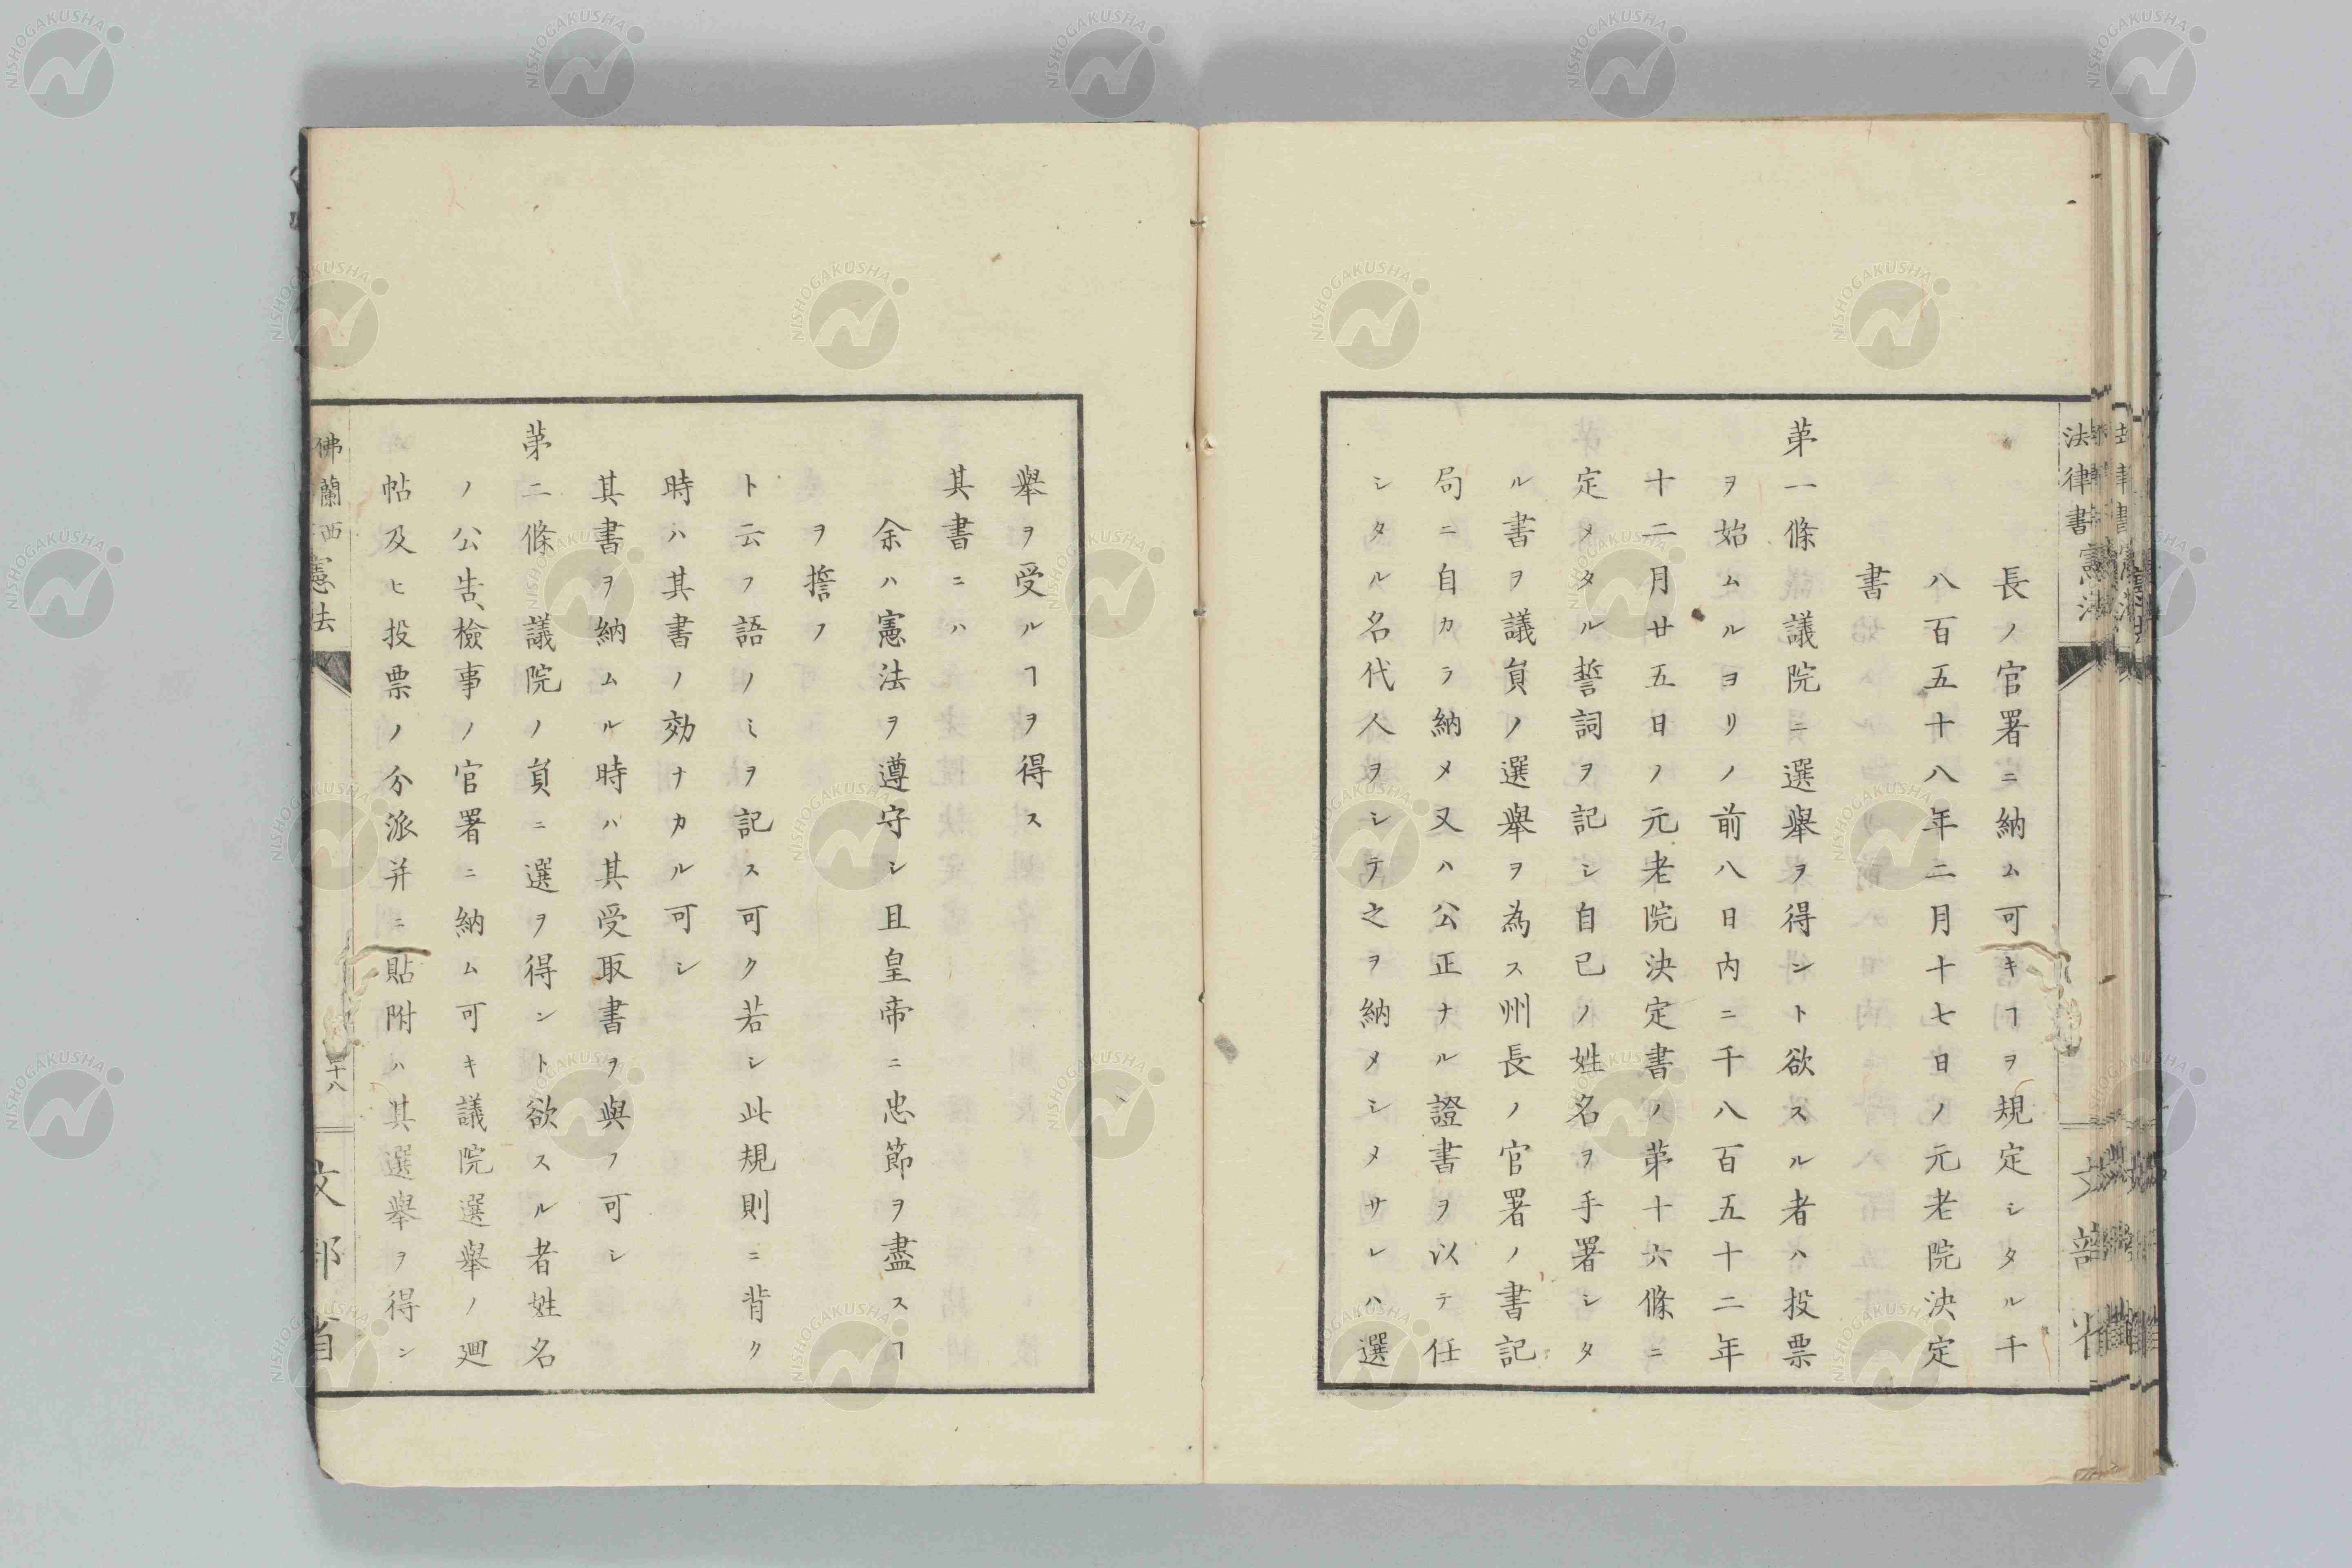 長ノ官署ニ納ム可キヿヲ規定シタル千
八百五十八年二月十七日ノ元老院決定
書
苐一條　議院ニ選舉ヲ得ント欲スル者ハ投票
ヲ始ムルヨリノ前八日内ニ千八百五十二年
十二月廿五日ノ元老院決定書ノ苐十六條ニ
定メタル誓詞ヲ記シ自己ノ姓名ヲ手署シタ
ル書ヲ議員ノ選舉ヲ為ス州長ノ官署ノ書記
局ニ自カラ納メ又ハ公正ナル證書ヲ以テ任
シタル名代人ヲシテ之ヲ納メシメサレハ選
舉ヲ受ルヿヲ得ス
其書ニハ
余ハ憲法ヲ遵守シ且皇帝ニ忠節ヲ盡スヿ
ヲ誓フ
ト云フ語ノミヲ記ス可ク若シ此規則ニ背ク
時ハ其書ノ効ナカル可シ
其書ヲ納ムル時ハ其受取書ヲ與フ可シ
苐二條　議院ノ員ニ選ヲ得ント欲スル者姓名
ノ公告、檢事ノ官署ニ納ム可キ議院選舉ノ廻
帖及ヒ投票ノ分派并ニ貼附ハ其選舉ヲ得ン
法律書 憲法
佛蘭西 憲法
十八
文部省
NISHOGAKUSHA